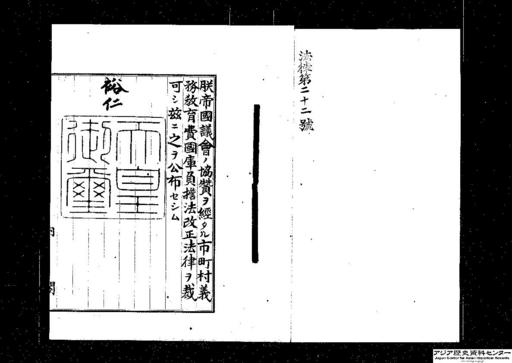 法律第二十二號
朕帝國議會ノ協贊ヲ經タル市町村義
務敎育費國庫負擔法改正法律ヲ裁
可シ茲ニ之ヲ公布セシム
裕仁
天皇
御璽
内閣
アジア歴史資料センター
Japan Center for Asian Historical Records